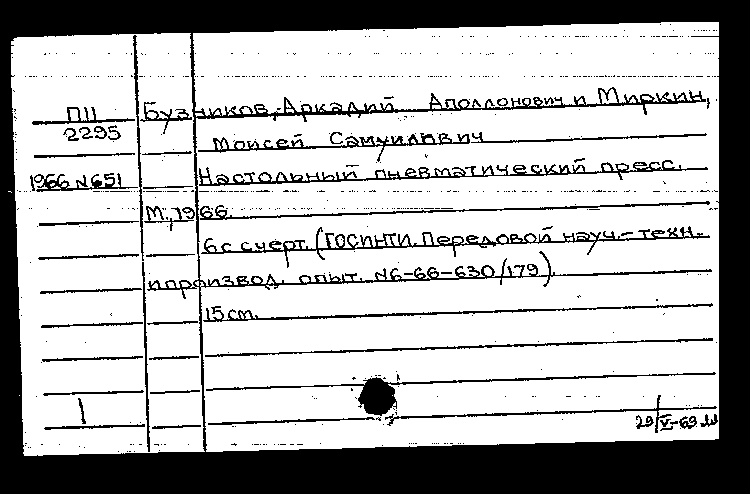 П11 Бузников, Аркадий Аполлонович и Миркин,
2295 Моисей Самуилович
1966 №651 Настольный пневматический пресс.
М., 1966.
6 с черт. (ГОСИНТИ. Передовой науч.-техн.
и производ. опыт. №6-66-630/179).
15 см.
29/V-69